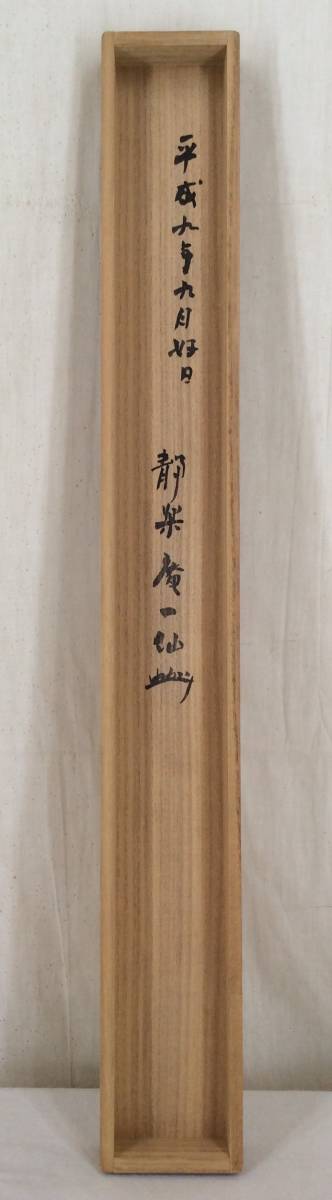 平成九年九月好日
静楽庵一仙